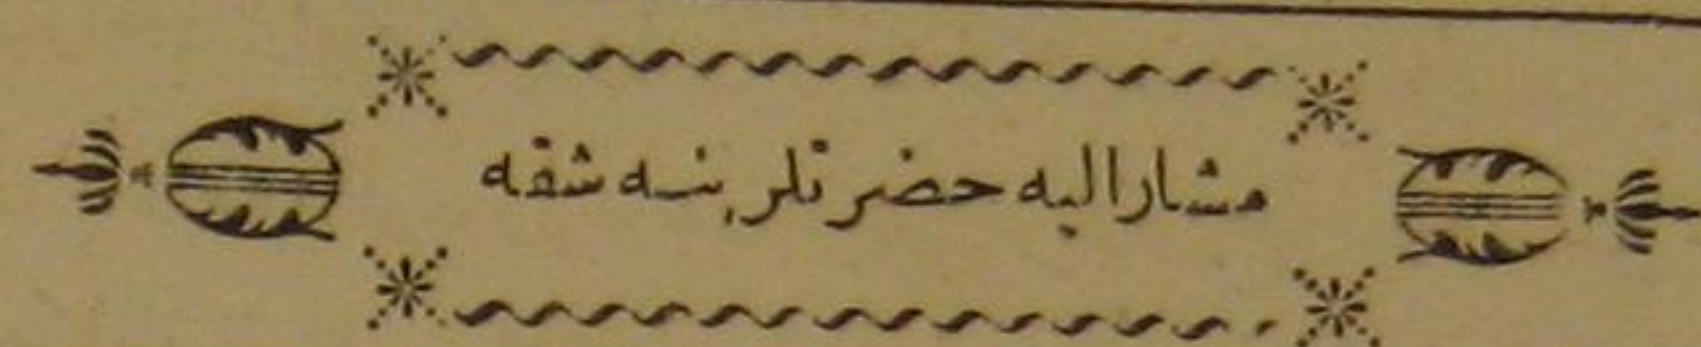 مشارالیه حضرتلرینه شقه